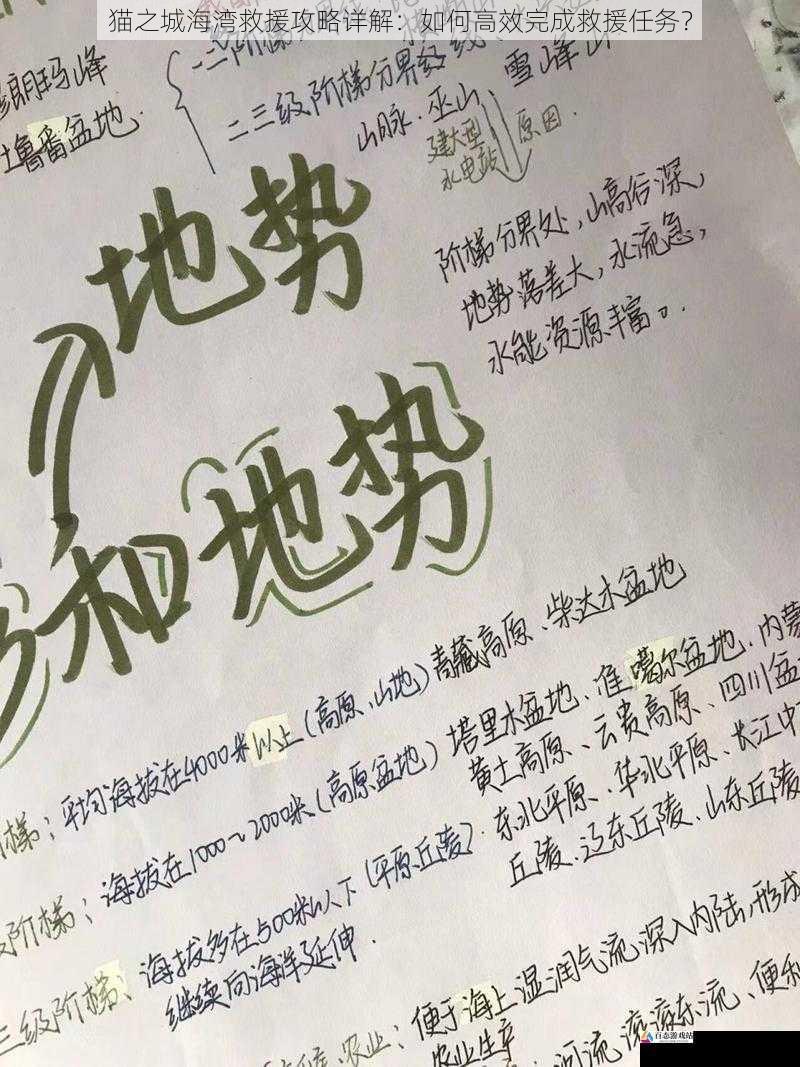 猫之城海湾救援攻略详解：如何高效完成救援任务？
朗玛峰
吐鲁番盆地.
二三级阶梯分界线
山脉.巫山、雪峰山
建大型
水电站
原因.
阶梯分界处，山高谷深，
地势落差大，水流急，
水能资源丰富。
地势
和地势
梯：平均海拔在4000米以上(高原、山地)青藏高原、柴达木盆地
阶梯：海拔在1000~2000米(高原盆地)塔里木盆地、准噶尔盆地、内蒙
黄土高原、云贵高原、四川盆
三级阶梯、海拔多在500米以下(平原丘陵).东北平原、华北平原、长江中
丘陵、辽东丘陵、山东丘陵
继续向海洋延伸.
农业：便于海上湿润气流深入内陆，形成
农业生产
河流滚滚东流、便利
百态游戏站